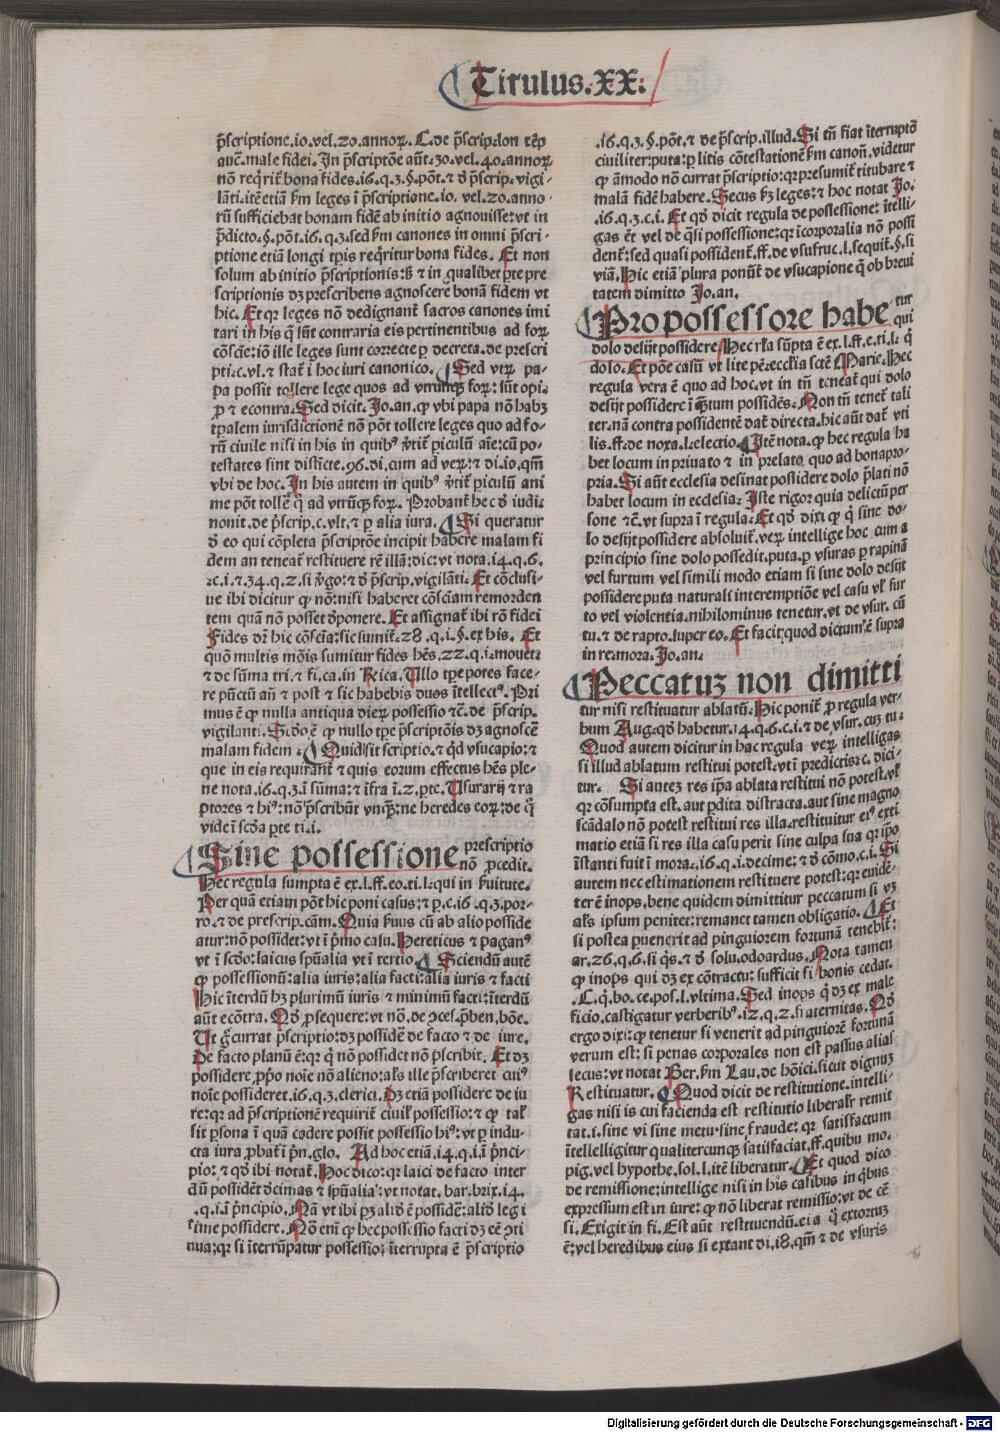 Titulus.XX.
p̄scriptione.io.vel.20.annoꝝ. C.de p̄scrip.lon tēp
auc̄.male fidei. In p̄scriptōe aūt.30.vel.40.annoꝝ
nō reqͥrit̄ bona fides.i6.q.3.§.pōt.⁊ ꝺ p̄scrip.vigi-
lāti.itē etiā ẜm leges ī p̄scriptione.io.vel.20.anno-
rū sufficiebat bonam fidē ab initio agnouisse:vt in
p̄dicto.§.pōt.i6.q.3.sed ẜm canones in omni p̄scri-
ptione etiā longi tp̄is reqͥritur bona fides. Et non
solum ab initio p̄scriptionis:ß ⁊ in qualibet ꝑte pre
scriptionis dꝫ prescribens agnoscere bonā fidem vt
hic. Et qꝛ leges nō dedignant̄ sacros canones imi
tari in his q̄ sūt contraria eis pertinentibus ad foꝝ
cōsciē:iō ille leges sunt correcte ꝑ decreta.de prescri
pti.c.vl.⁊ stat̄ ī hoc iuri canonico. Sed vtꝝ pa-
pa possit tollere lege quos ad vtrunqꝫ foꝝ: sūt opi.
ꝓ ⁊ econtra. Sed dicit. Jo.an.ꝙ vbi papa nō habꝫ
tꝑalem iurisdictionē nō pōt tollere leges quo ad fo-
rū ciuile nisi in his in quibꝰ v̄tit̄ ꝑiculū aīe:cū po-
testates sint disticte.96.di.cum ad veꝝ:⁊ di.io.qm̄
vbi de hoc. In his autem in quibꝰ v̄tit̄ ꝑiculū ani
me pōt tollē q̄ ad vtrūqꝫ foꝝ. Probant̄ hec ꝺ iudi.
nouit.de p̄scrip.c.vlt.⁊ ꝑ alia iura. Si queratur
ꝺ eo qui cōpleta p̄scriptōe incipit habere malam fi
dem an teneat̄ restituere rē illā:dic:vt nota.i4.q.6.
c.i.⁊.34.q.2.si v̄go:⁊ ꝺ p̄scrip.vigilāti. Et cōclusi-
ue ibi dicitur ꝙ nō:nisi haberet cōsciam remorden
tem quā nō posset ꝺponere. Et assignat̄ ibi rō fidei
Fides dr̄ hic cōscīa:sic sumit̄.28.q.i.§.ex his. Et
quō multis mōis sumitur fides hēs.22.q.i.mouet:
⁊ de sūma tri.⁊ fi.ca.in Rica. Ullo tꝑe potes face-
re pūctū añ ⁊ post ⁊ sic habebis duos ītellectꝰ. Pri
mus ē ꝙ nulla antiqua dieꝝ possessio ⁊c̄.de p̄scrip.
vigilanti. Scd̄o ē ꝙ nullo tꝑe p̄scriptōis dꝫ agnoscē
malam fidem. Quid sit scriptio.⁊ qͥd vsucapio:⁊
que in eis requirant̄ ⁊ quis eorum effectus hēs ple-
ne nota.i6.q.3.ī sūma:⁊ īfra ī.2.ꝑte. Usurarij ⁊ ra
ptores ⁊ hiꝰ:nō p̄scribūt vnqꝫ:ne heredes eoꝝ:de q̄
vide ī scd̄a ꝑte ti.i.
Sine possessione prescriptio
nō ꝓcedit.
Hec regula sumpta ē ex.l.ff.eo.ti.l:qui in ẜuitute.
Per quā etiam pōt hic poni casus:⁊ ꝑ.c.i6.q.3.por-
ro.⁊ de prescrip.cām. Quia ẜuus cū ab alio posside
atur:nō possidet:vt ī p̄mo casu. Hereticus ⁊ paganꝰ
vt ī scd̄o:laicus spūalia vt ī tertio. Sciendū autē
ꝙ possessionū:alia iuris:alia facti:alia iuris ⁊ facti
Hic īterdū hꝫ plurimū iuris ⁊ minimū facti:īterdū
aūt ecōtra. Qd̄ ꝓsequere:vt nō.de ꝯces.p̄ben.bōe.
Ut ḡ currat p̄scriptio:dꝫ possidē de facto ⁊ de iure.
De facto planū ē:qꝛ q̄ nō possidet nō p̄scribit. Et dꝫ
possidere ꝓpō noīe nō alieno:als̄ ille p̄scriberet cuiꝰ
noīe possideret.i6.q.3.clerici. Dꝫ etiā possidere de iu
re:qꝛ ad p̄scriptionē requirit̄ ciuil̄ possessio:⁊ ꝙ tal̄
sit ꝑsona ī quā cadere possit possessio hiꝰ:vt ꝑ indu-
cta iura ꝓbat̄ ī p̄n.glo. Ad hoc etiā.i4.q.i.ī p̄nci-
pio:⁊ qd̄ ibi notat̄. Hoc dico:qꝛ laici de facto inter
dū possidēt ꝺcimas ⁊ spūaliaꝰ:vt notat.bar.brix.i4.
.q.i.ī p̄ncipio. Nā vt ibi pꝫ aliꝺ ē possidē:aliꝺ leg i
time possidere. Nō em̄ ꝙ hec possessio facti dꝫ eē ꝯti
nua:qꝛ si īterrūpatur possessio: īterrupta ē p̄scriptio
.i6.q.3.§.pōt.⁊ de p̄scrip.illud. Si tn̄ fiat īterruptō
ciuiliter:puta:ꝑ litis cōtestationē ẜm canoñ.videtur
ꝙ āmodo nō currat p̄scriptio:qꝛ presumit̄ titubare ⁊
malā fidē habere. Secus ẜꝫ leges:⁊ hoc notat Jo.
.i6.q.3.c.i. Et qd̄ dicit regula de possessione: ītelli-
gas ēt vel de q̄si possessione:qꝛ īcorporalia nō possi
dent̄:sed quasi possident̄.ff.de vsufruc.l.sequit̄.§.si
viā. Hic etiā plura ponūt̄ de vsucapione q̄ ob breui
tatem dimitto Jo.an.
Pro possessore habe tur
qui
dolo desijt possidere Hec rl̄a sūpta ē ex.l.ff.e.ti.l: q̄
dolo. Et pōe casū vt lite pē.eccl̄ia sctē Marie. Hec
regula vera ē quo ad hoc.vt in tm̄ teneat̄ qui dolo
desijt possidere ī qͣtum possidēs. Non tn̄ tenet̄ tali
ter.nā contra possidentē dat̄ directa.hic aūt dat̄ vti
lis.ff.de noxa.l.electio. Itē nota.ꝙ hec regula ha
bet locum in priuato ⁊ in prelato.quo ad bona pro-
pria. Si aūt ecclesia desinat possidere dolo p̄lati nō
habet locum in ecclesia. Iste rigor quia delictū per
sone ⁊c̄.vt supra ī regula. Et qd̄ dixi ꝙ q̄ sine do-
lo desijt possidere absoluit̄.veꝝ intellige hoc cum a
principio sine dolo possedit.puta.ꝑ vsuras ꝑ rapinā
vel furtum vel simili modo etiam si sine dolo desijt
possidere puta naturali interemptiōe vel casu vl̄ fur
to vel violentia.nihilominus tenetur.vt de vsur.cū
tu.⁊ de rapto.super eo. Et facit quod dictum ē supra
in re.mora. Jo.an.
Peccatuꝫ non dimitti
tur nisi restituatur ablatū. Hic ponit̄ ꝓ regula ver-
bum Aug.qd̄ habetur.i4.q.6.c.i.⁊ de vsur.cuꝫ tu:
Quod autem dicitur in hac regula veꝝ intelligas
si illud ablatum restitui potest.vt ī predictis:c.dici-
tur. Si auteꝫ res ip̄a ablata restitui nō potest.vl̄
qꝛ cōsumpta est.aut ꝑdita distracta.aut sine magno
scādalo nō potest restitui res illa.restituitur eiꝰ exti
matio etiā si res illa casu perit sine culpa sua qꝛ ip̄o
īstanti fuit ī mora.i6.q.i.decime:⁊ ꝺ cōmo.c.i. Si
autem nec estimationem restituere potest:qꝛ euidē-
ter ē inops.bene quidem dimittitur peccatum si vꝫ
als̄ ipsum peniter:remanet tamen obligatio. Et
si postea ꝑuenerit ad pinguiorem fortunā tenebit̄:
ar.26.q.6.si qͥs.⁊ ꝺ solu.odoardus. Nota tamen
ꝙ inops qui dꝫ ex cōtractu: sufficit si bonis cedat.
.C.q̄.bo.ce.pos.l.vltima. Sed inops q̄ dꝫ ex male
ficio.castigatur verberibꝰ.i2.q.2.fraternitas. Qd̄
ergo dixi:ꝙ tenetur si venerit ad pinguiorē fortunā
verum est: si penas corporales non est passus alias
secus:vt notat Ber.ẜm Lau.de hōici.sicut dignuꝫ
Restituatur. Quod dicit de restitutione.intelli-
gas nisi is cui facienda est restitutio liberal̄r remit
tat.i.sine vi sine metu.sine fraude: qꝛ satisfactum
ītellelligitur qualitercunqꝫ satisfaciat.ff.quibu mo.
pig.vel hypothe.sol.l.itē liberatur. Et quod dico
de remissione:intellige nisi in his casibus in qͥbus
expressum est in iure: ꝙ nō liberat remissio:vt de cē
si. Exigit in fi. Est aūt restituendū.ei a q̄ extortuꝫ
ē:vel heredibus eius si extant di.i8.qm̄ ⁊ de vsuris
Digitalisierung gefördert durch die Deutsche Forschungsgemeinschaft - DFG